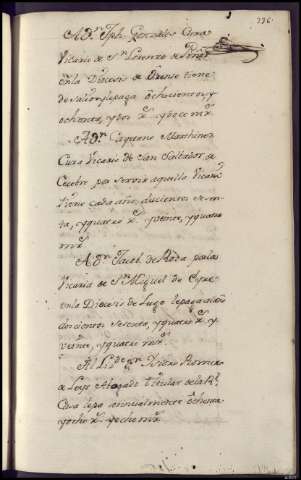 226.
A Dn. Jph. Gonzalez Cura
Vicario de Sn. Lorenzo de
en la Diocesis de Orense tiene
de se le paga ochocientos y
ochenta, y dos rs. y doce mrs.
A Dn. Cayetano Martinez
Cura Vicario de San Salvador de
Cecebre por servir aquella Vicaria
tiene cada año, doscientos
ta, y quatro rs. y veinte, y quatro
mrs.
A Dn. Jacob. de Roda por la
Vicaria de Sn. Miguel de Eyre
en la Diocesis de Lugo le paga
doscientos sesenta, y quatro rs. y
veinte, y quatro mrs.
Al Lizdo. Dn. Romera
de Leys Abogado titular de la Rl.
Casa le pa anualmente ochenta
y ocho rs. y ocho mrs.